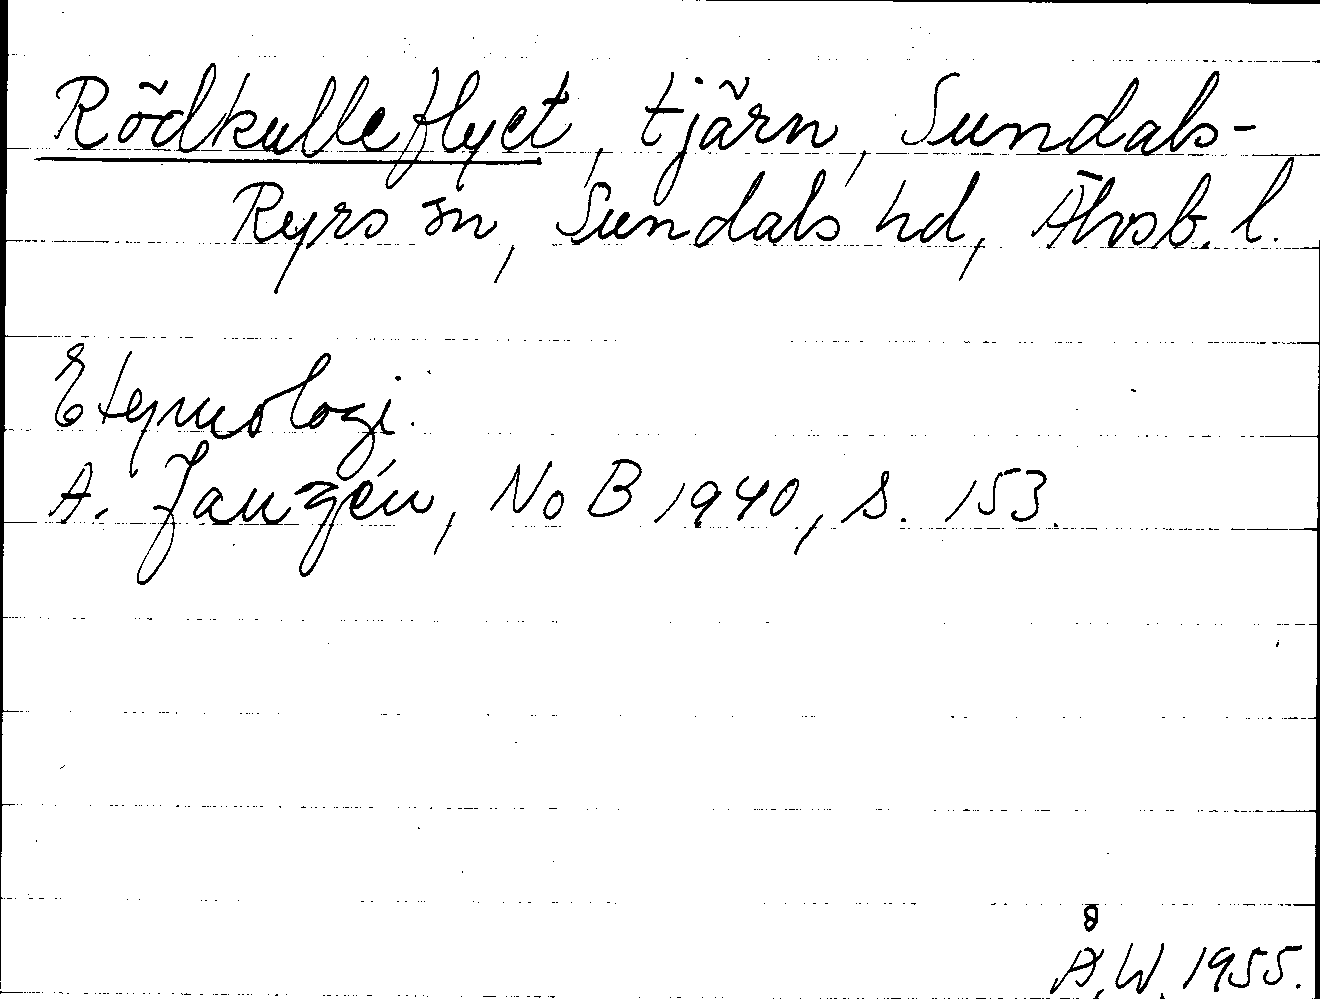 Rödkulleflyet, tjärn, Sundals-
Ryrs sn, Sundals hd, Älvsb. l.
Etymologi.
A. Janzén, NoB 1940, s. 153.
Å.W. 1955.